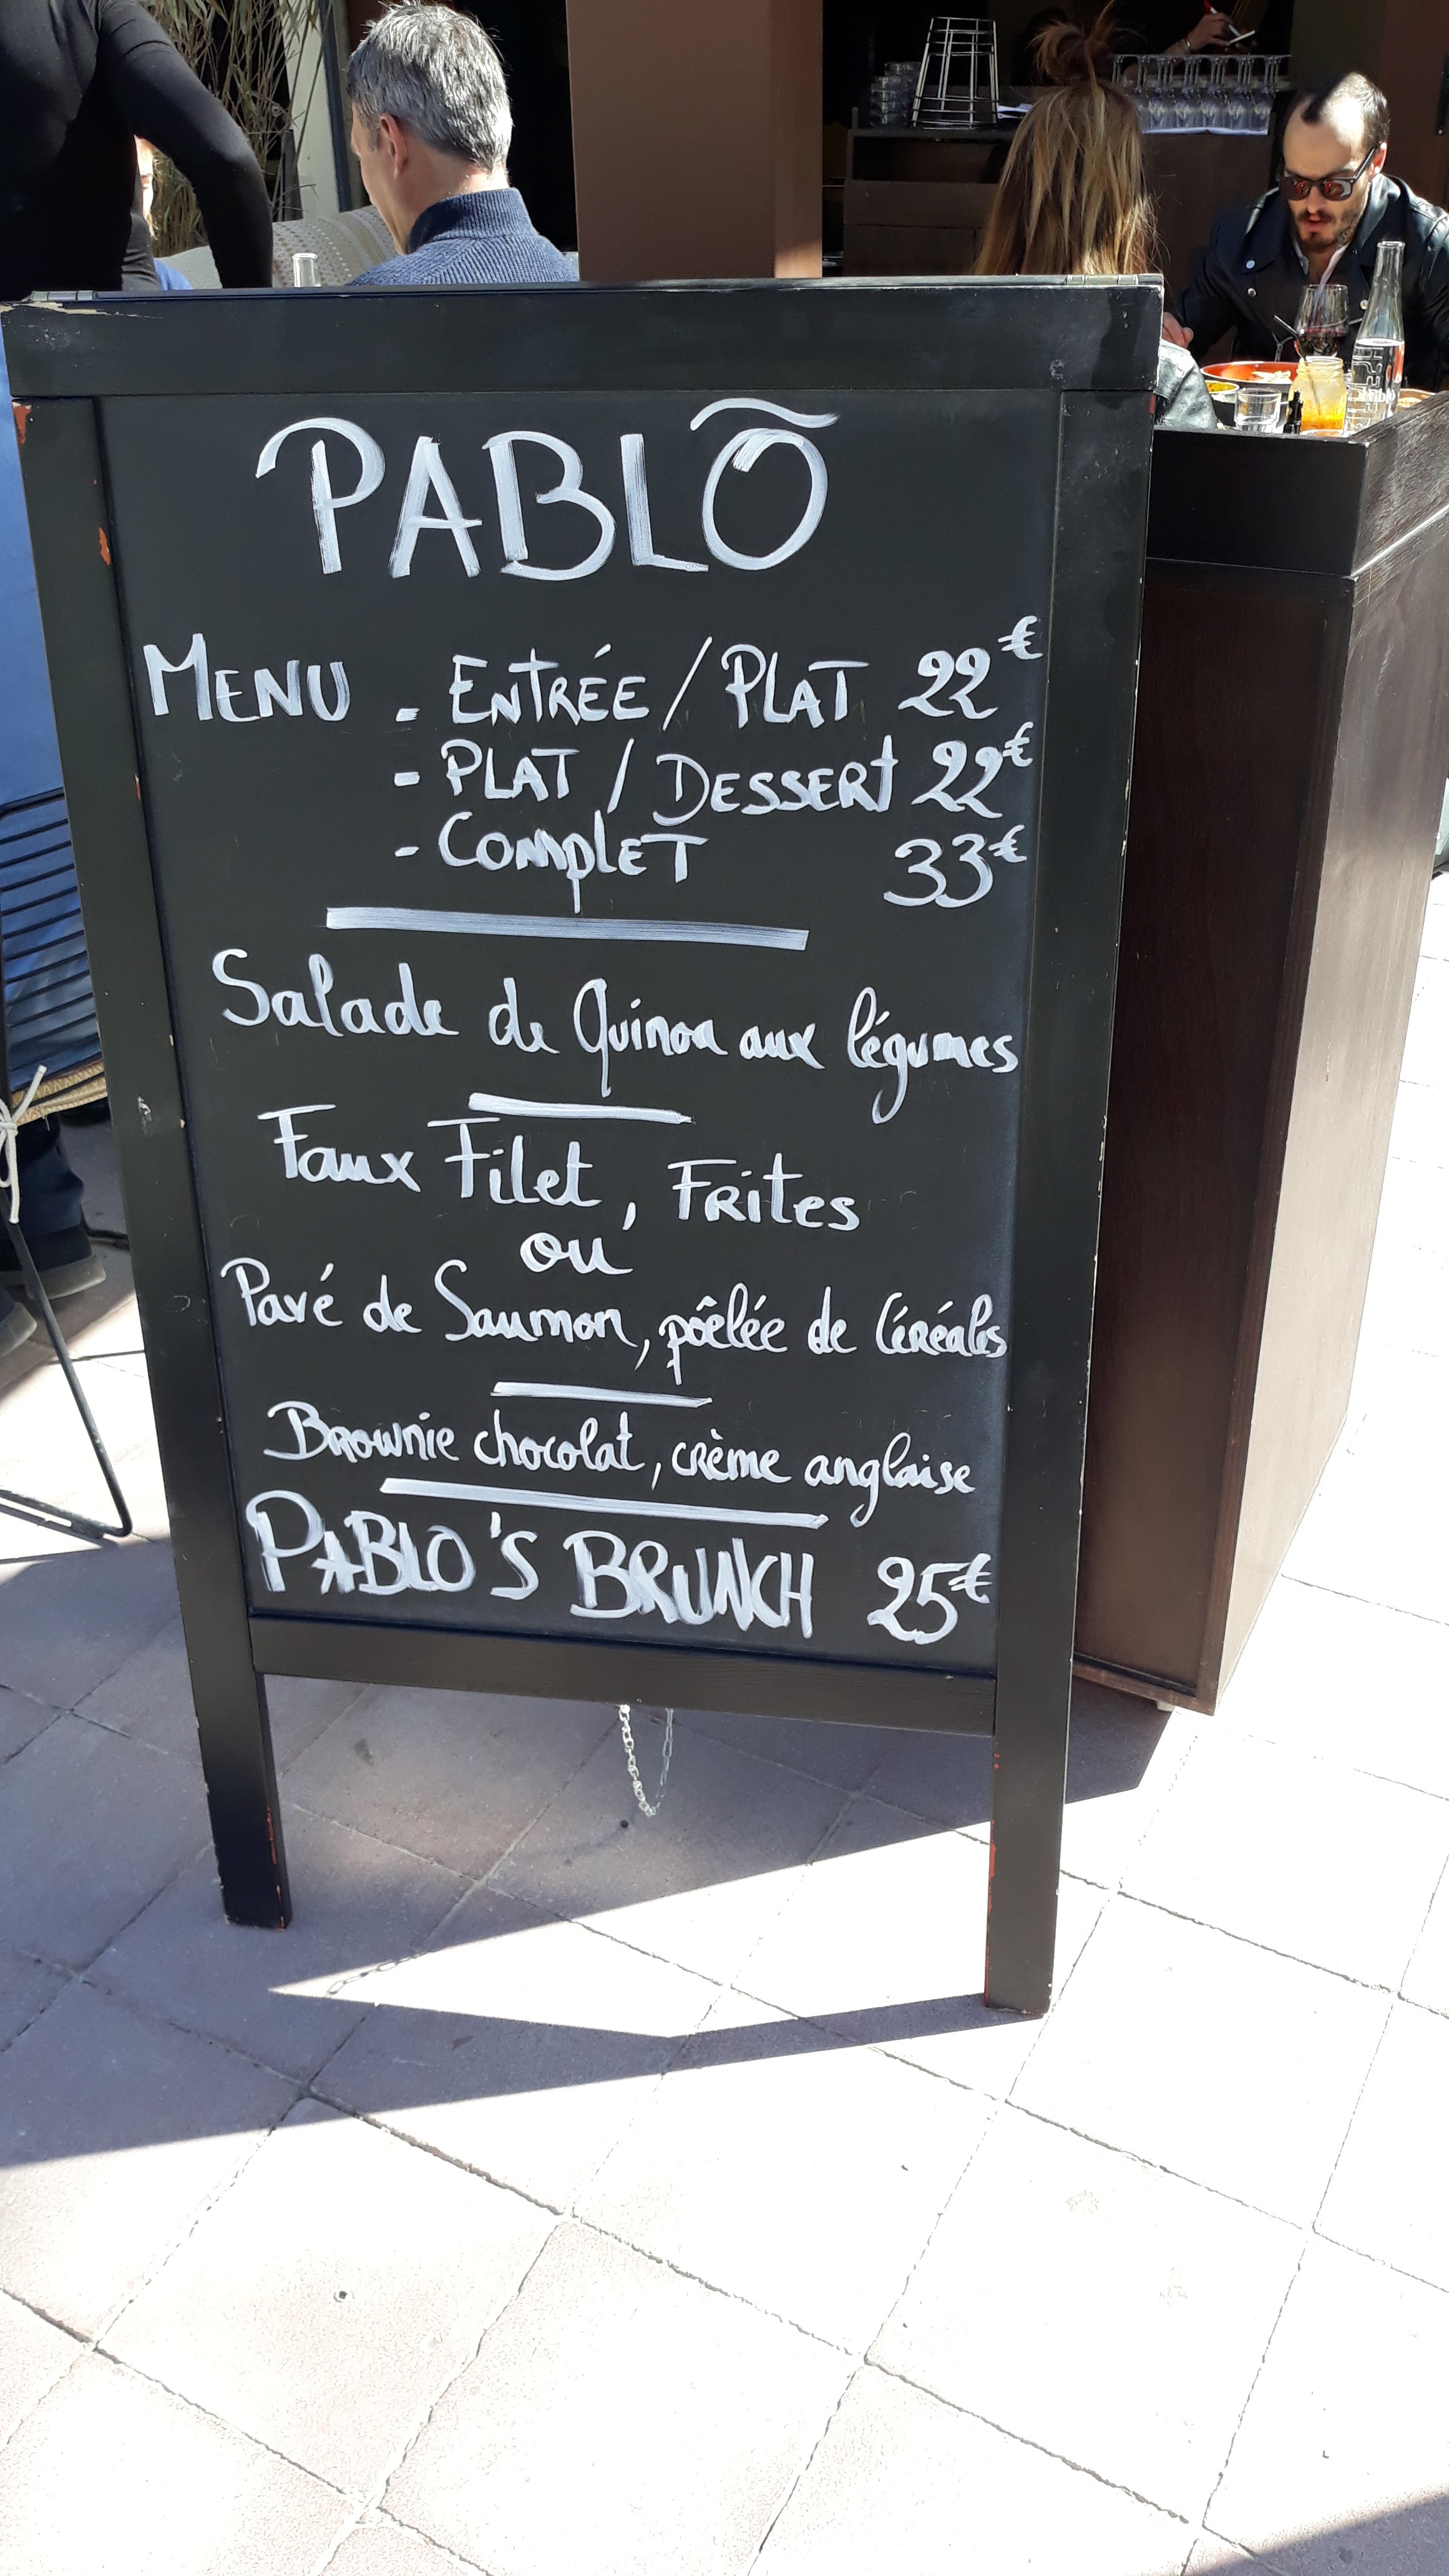 PABLO
MENU - ENTRÉE / PLAT 22€
- PLAT / DESSERT 22€
- COMPLET 33€
Salade de Quinoa aux légumes
Faux Filet, Frites
ou
Pavé de Saumon, pôêlée de Céréales
Brownie chocolat, crème anglaise
PABLO'S BRUNCH 25€